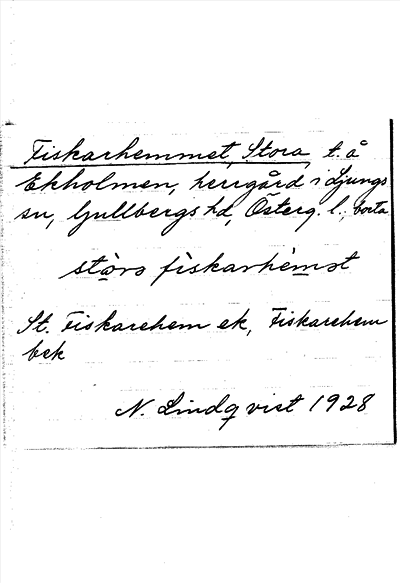 Fiskarhemmet, Stora, t. å
Ekholmen, herrgård i Ljungs
sn, Gullbergs hd, Österg. l.; borta
stòro fìskarhèmət
St. Fiskarehem ek, Fiskarehem
bek
N. Lindqvist 1928